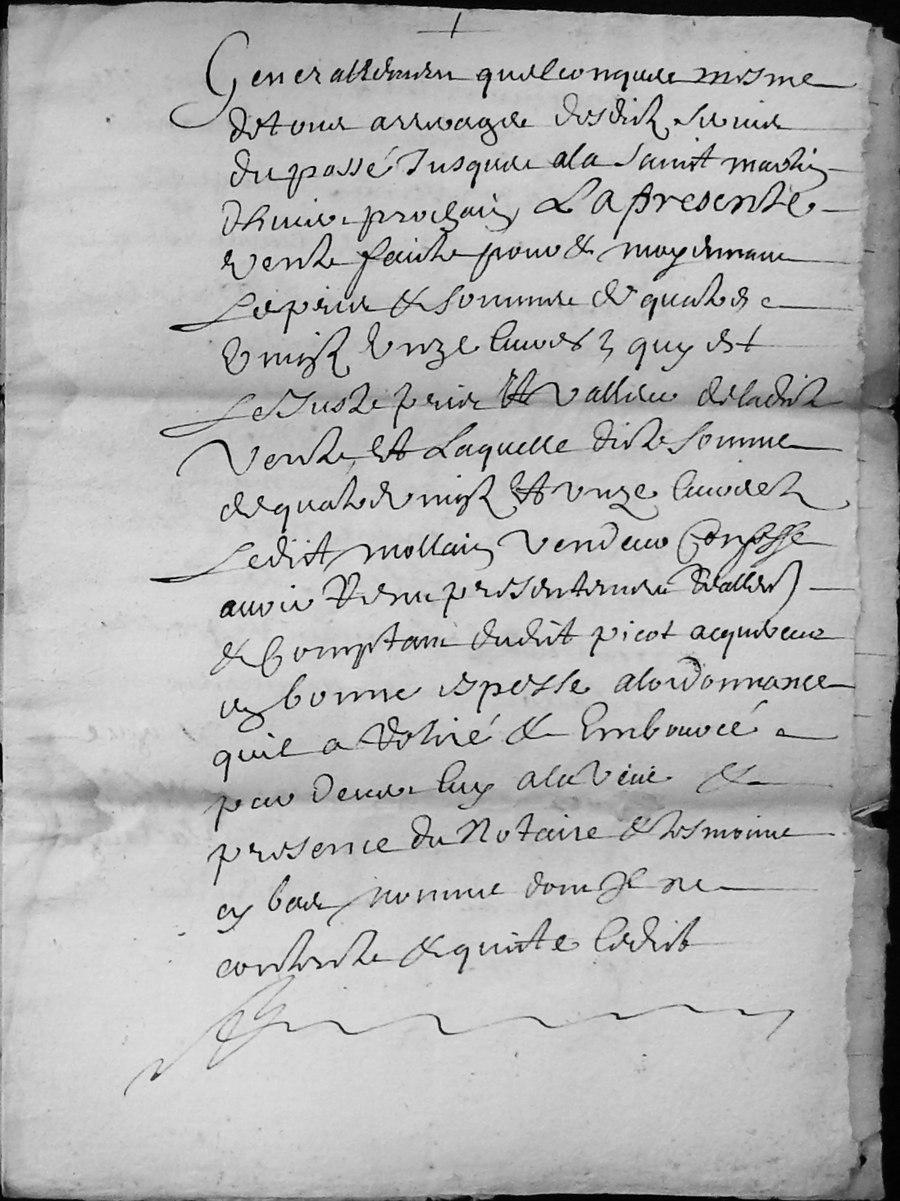 Generallement quelconques mesme
de tous arrerages desdits servis
du passé Jusques a la saint martin
dhiver prochain La presente
vente faicte pour & moyennant
Le prix & somme de quatre
vingt unze livres quy est
Le Juste prix Et valleur de ladite
vente, Et Laquelle dicte somme
de quatre vingt Et unze livres
Ledict mollain vendeur Confesse
avoir Receu presentement Reallement
& Comptant dudit picot acquereur
en bonne espesse a lordonnance
quil a Retiré & Emboursé
par devers luy a la veue &
presence du Notaire & tesmoins
cy bas nommes dont Il se
contente & quitte ledit